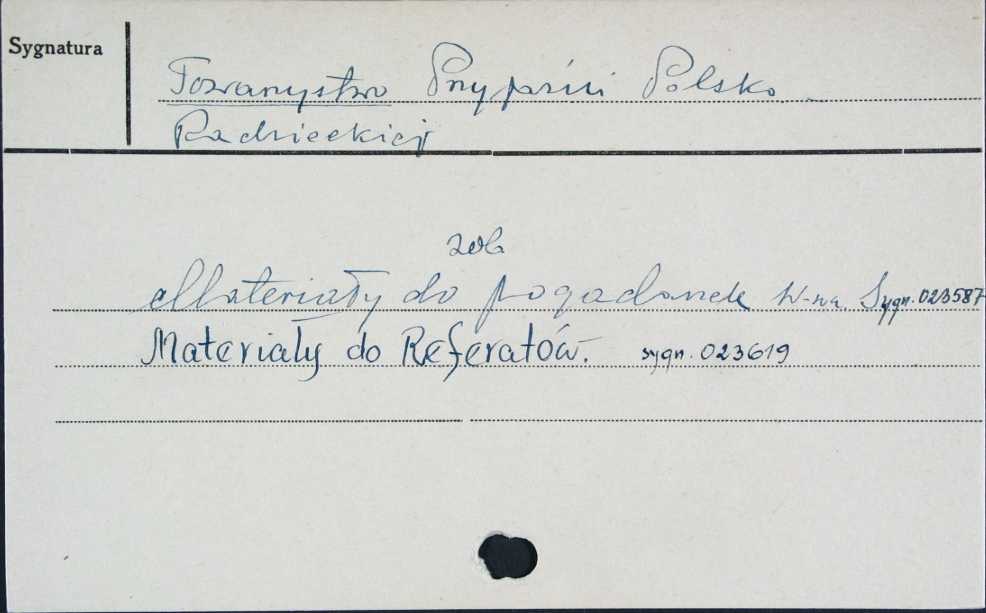 Sygnatura
Towarzystwo Przyjaźni Polsko
Radzieckiej
zob
Materiały do pogadanek W-wa. Sygn. 023587
Materiały do Referatów. sygn. 023619